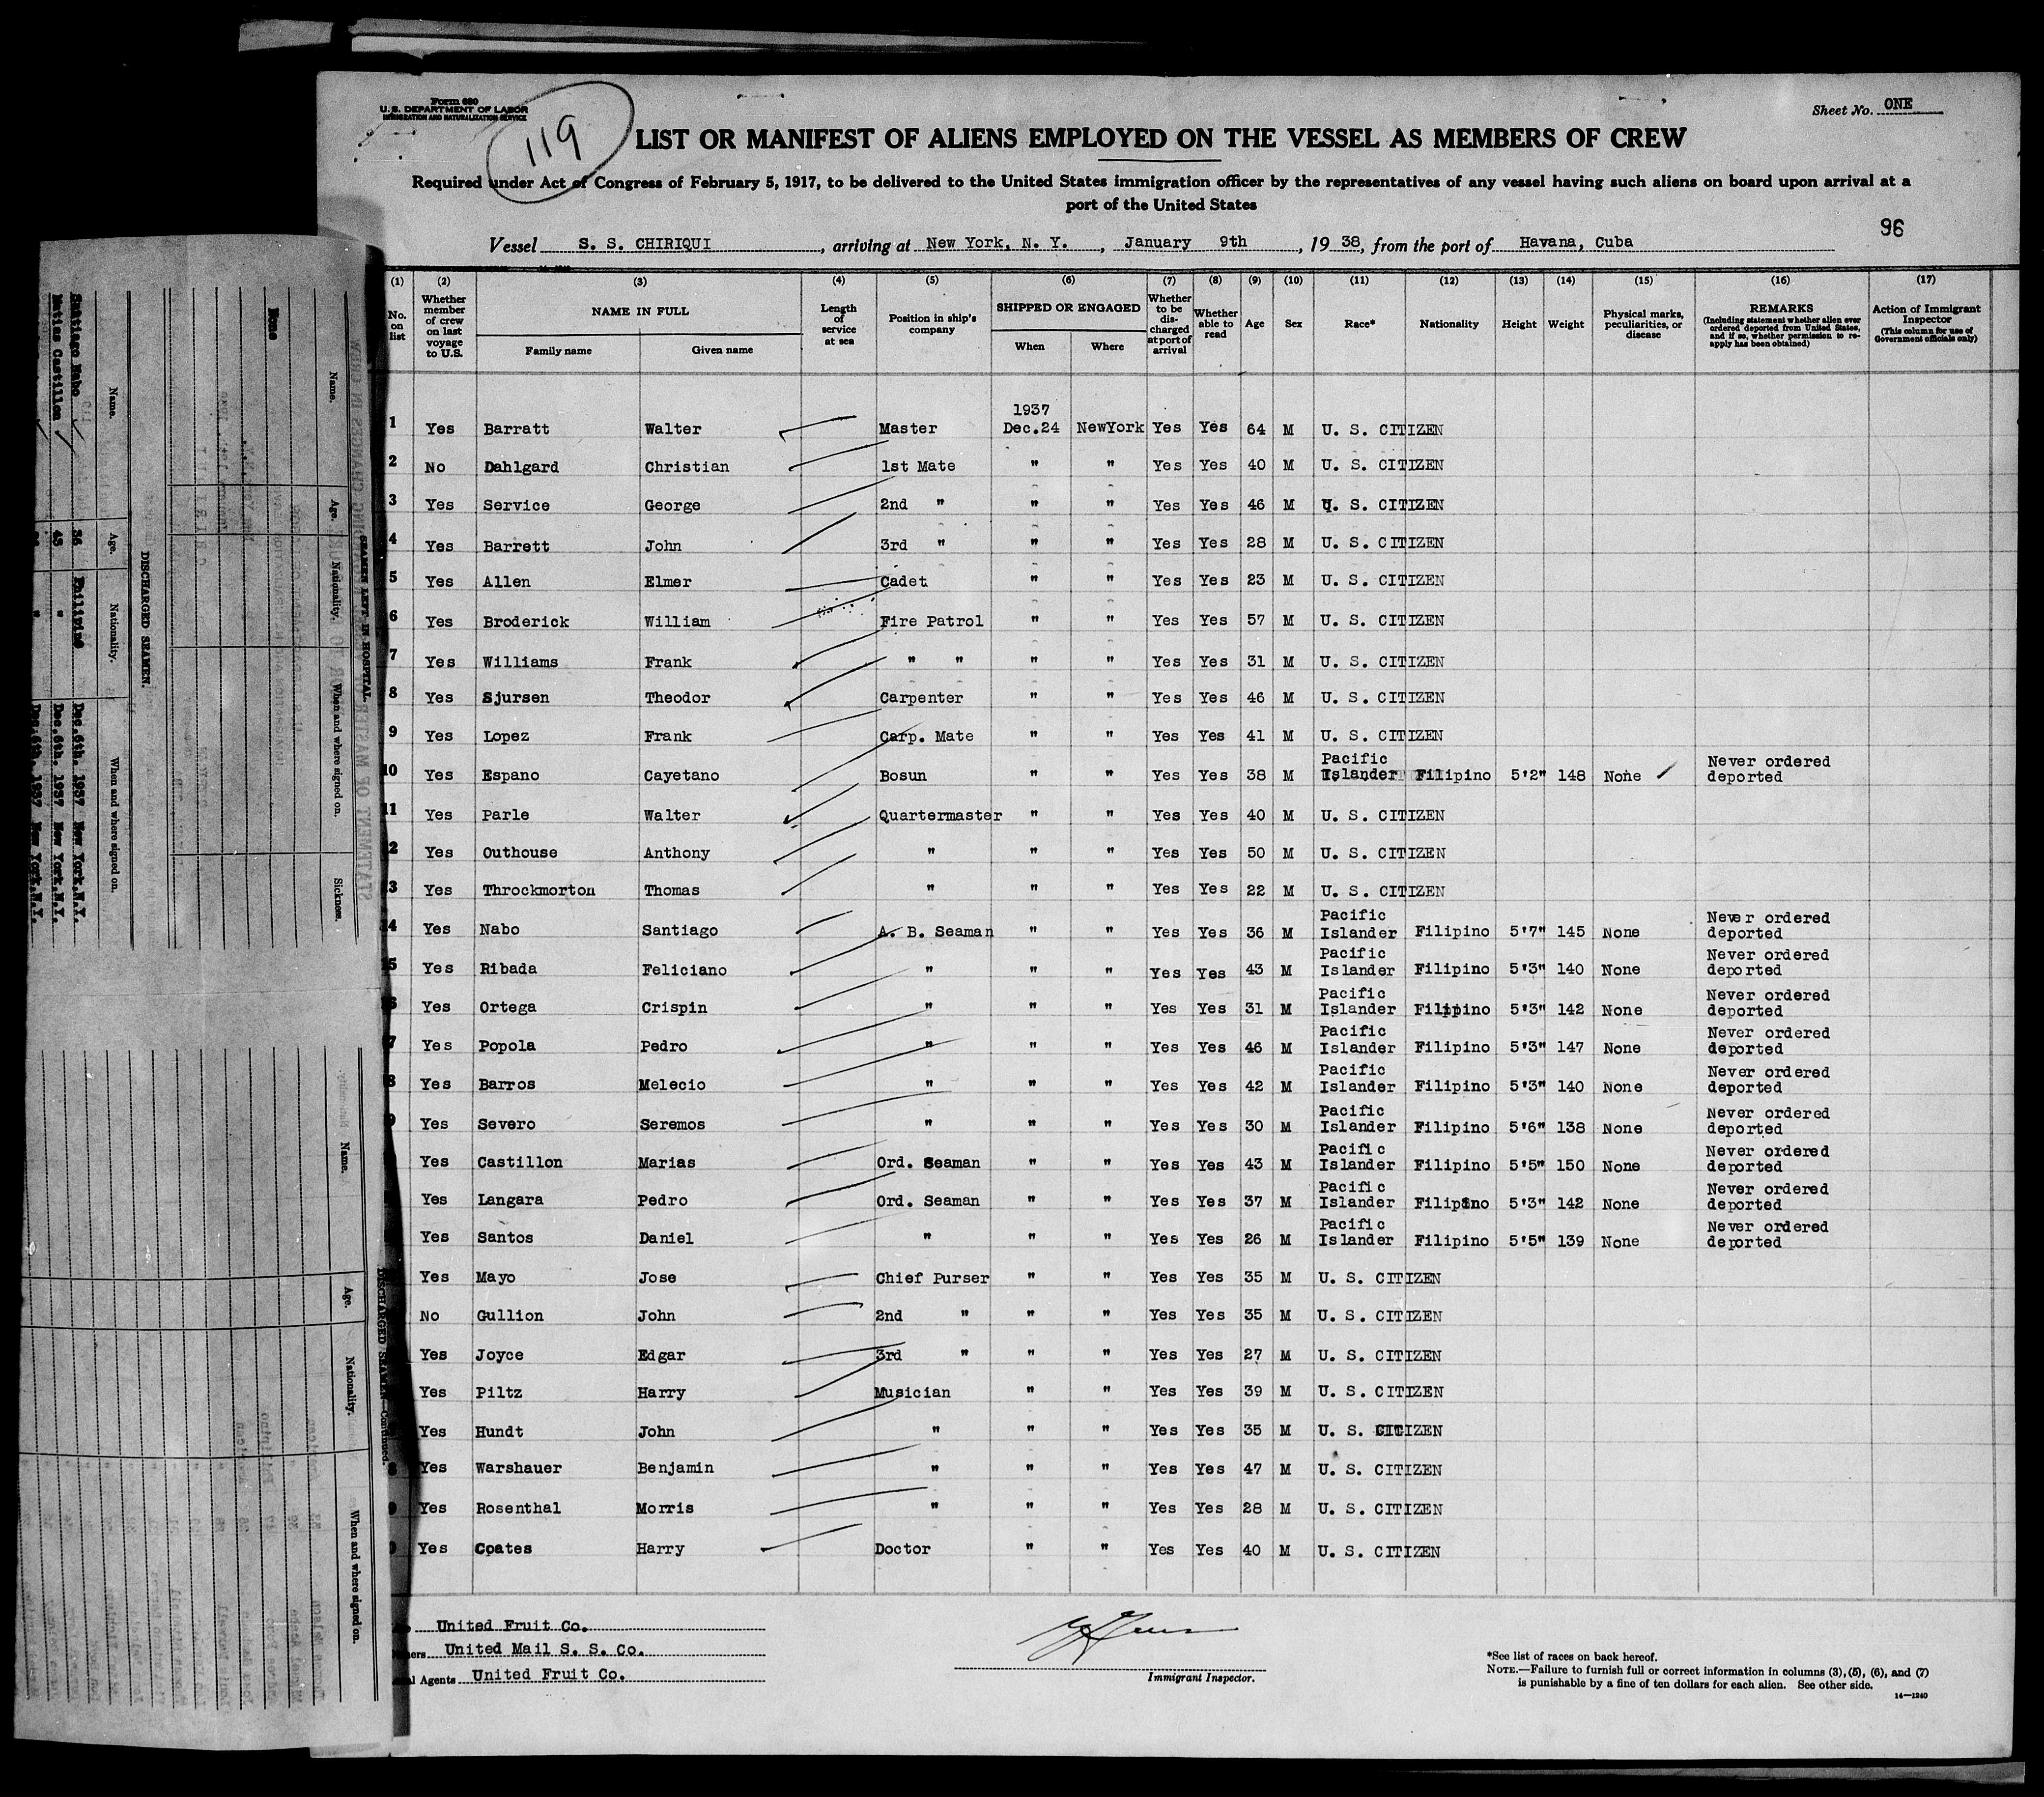 Form 680
U. S. DEPARTMENT OF LABOR
IMMIGRATION AND NATURALIZATION SERVICE
119
Sheet No. ONE
LIST OR MANIFEST OF ALIENS EMPLOYED ON THE VESSEL AS MEMBERS OF CREW
Required under Act of Congress of February 5, 1917, to be delivered to the United States immigration officer by the representatives of any vessel having such aliens on board upon arrival at a
port of the United States
96
Vessel S. S. CHIRIQUI, arriving at New York, N. Y., January 9th, 1938, from the port of Havana, Cuba
(1) (2) (3) (4) (5) (6) (7) (8) (9) (10) (11) (12) (13) (14) (15) (16) (17)
No. on list
Whether member of crew on last voyage to U.S.
NAME IN FULL
Family name Given name
Length of service at sea
Position in ship's company
SHIPPED OR ENGAGED
When Where
Whether to be discharged at port of arrival
Whether able to read
Age
Sex
Race*
Nationality
Height
Weight
Physical marks, peculiarities, or disease
REMARKS
(Including statement whether alien ever ordered deported from United States, and if so, whether permission to reapply has been obtained)
Action of Immigrant Inspector
(This column for use of Government officials only)
1937
1 Yes Barratt Walter Master Dec.24 NewYork Yes Yes 64 M U. S. CITIZEN
2 No Dahlgard Christian 1st Mate " " Yes Yes 40 M U. S. CITIZEN
3 Yes Service George 2nd " " " Yes Yes 46 M U. S. CITIZEN
4 Yes Barrett John 3rd " " " Yes Yes 28 M U. S. CITIZEN
5 Yes Allen Elmer Cadet " " Yes Yes 23 M U. S. CITIZEN
6 Yes Broderick William Fire Patrol " " Yes Yes 57 M U. S. CITIZEN
7 Yes Williams Frank " " " " Yes Yes 31 M U. S. CITIZEN
8 Yes Sjursen Theodor Carpenter " " Yes Yes 46 M U. S. CITIZEN
9 Yes Lopez Frank Carp. Mate " " Yes Yes 41 M U. S. CITIZEN
10 Yes Espano Cayetano Bosun " " Yes Yes 38 M Pacific Islander Filipino 5'2" 148 None Never ordered deported
11 Yes Parle Walter Quartermaster " " Yes Yes 40 M U. S. CITIZEN
2 Yes Outhouse Anthony " " " Yes Yes 50 M U. S. CITIZEN
3 Yes Throckmorton Thomas " " " Yes Yes 22 M U. S. CITIZEN
14 Yes Nabo Santiago A. B. Seaman " " Yes Yes 36 M Pacific Islander Filipino 5'7" 145 None Never ordered deported
5 Yes Ribada Feliciano " " " Yes Yes 43 M Pacific Islander Filipino 5'3" 140 None Never ordered deported
6 Yes Ortega Crispin " " " Yes Yes 31 M Pacific Islander Filipino 5'3" 142 None Never ordered deported
7 Yes Popola Pedro " " " Yes Yes 46 M Pacific Islander Filipino 5'3" 147 None Never ordered deported
8 Yes Barros Melecio " " " Yes Yes 42 M Pacific Islander Filipino 5'3" 140 None Never ordered deported
9 Yes Severo Seremos " " " Yes Yes 30 M Pacific Islander Filipino 5'6" 138 None Never ordered deported
Yes Castillon Marias Ord. Seaman " " Yes Yes 43 M Pacific Islander Filipino 5'5" 150 None Never ordered deported
Yes Langara Pedro Ord. Seaman " " Yes Yes 37 M Pacific Islander Filipino 5'3" 142 None Never ordered deported
Yes Santos Daniel " " " Yes Yes 26 M Pacific Islander Filipino 5'5" 139 None Never ordered deported
Yes Mayo Jose Chief Purser " " Yes Yes 35 M U. S. CITIZEN
No Gullion John 2nd " " " Yes Yes 35 M U. S. CITIZEN
Yes Joyce Edgar 3rd " " " Yes Yes 27 M U. S. CITIZEN
Yes Piltz Harry Musician " " Yes Yes 39 M U. S. CITIZEN
Yes Hundt John " " " Yes Yes 35 M U. S. CITIZEN
8 Yes Warshauer Benjamin " " " Yes Yes 47 M U. S. CITIZEN
9 Yes Rosenthal Morris " " " Yes Yes 28 M U. S. CITIZEN
0 Yes Coates Harry Doctor " " Yes Yes 40 M U. S. CITIZEN
United Fruit Co.
United Mail S. S. Co.
Agents United Fruit Co.
Immigrant Inspector.
*See list of races on back hereof.
NOTE.—Failure to furnish full or correct information in columns (3), (5), (6), and (7)
is punishable by a fine of ten dollars for each alien. See other side.
14—1240
SEAMEN LEFT IN HOSPITAL
Name. Age. Nationality. When and where signed on. Sickness.
None
DISCHARGED SEAMEN.
Name. Age. Nationality. When and where signed on.
Santiago Nabo 36 Philipine Dec.6th. 1937 New York.N.Y.
Matias Castillon 43 " Dec.6th. 1937 New York.N.Y.
" Dec.6th. 1937 New York.N.Y.
DISCHARGED SEAMEN—Continued.
Name. Age. Nationality. When and where signed on.